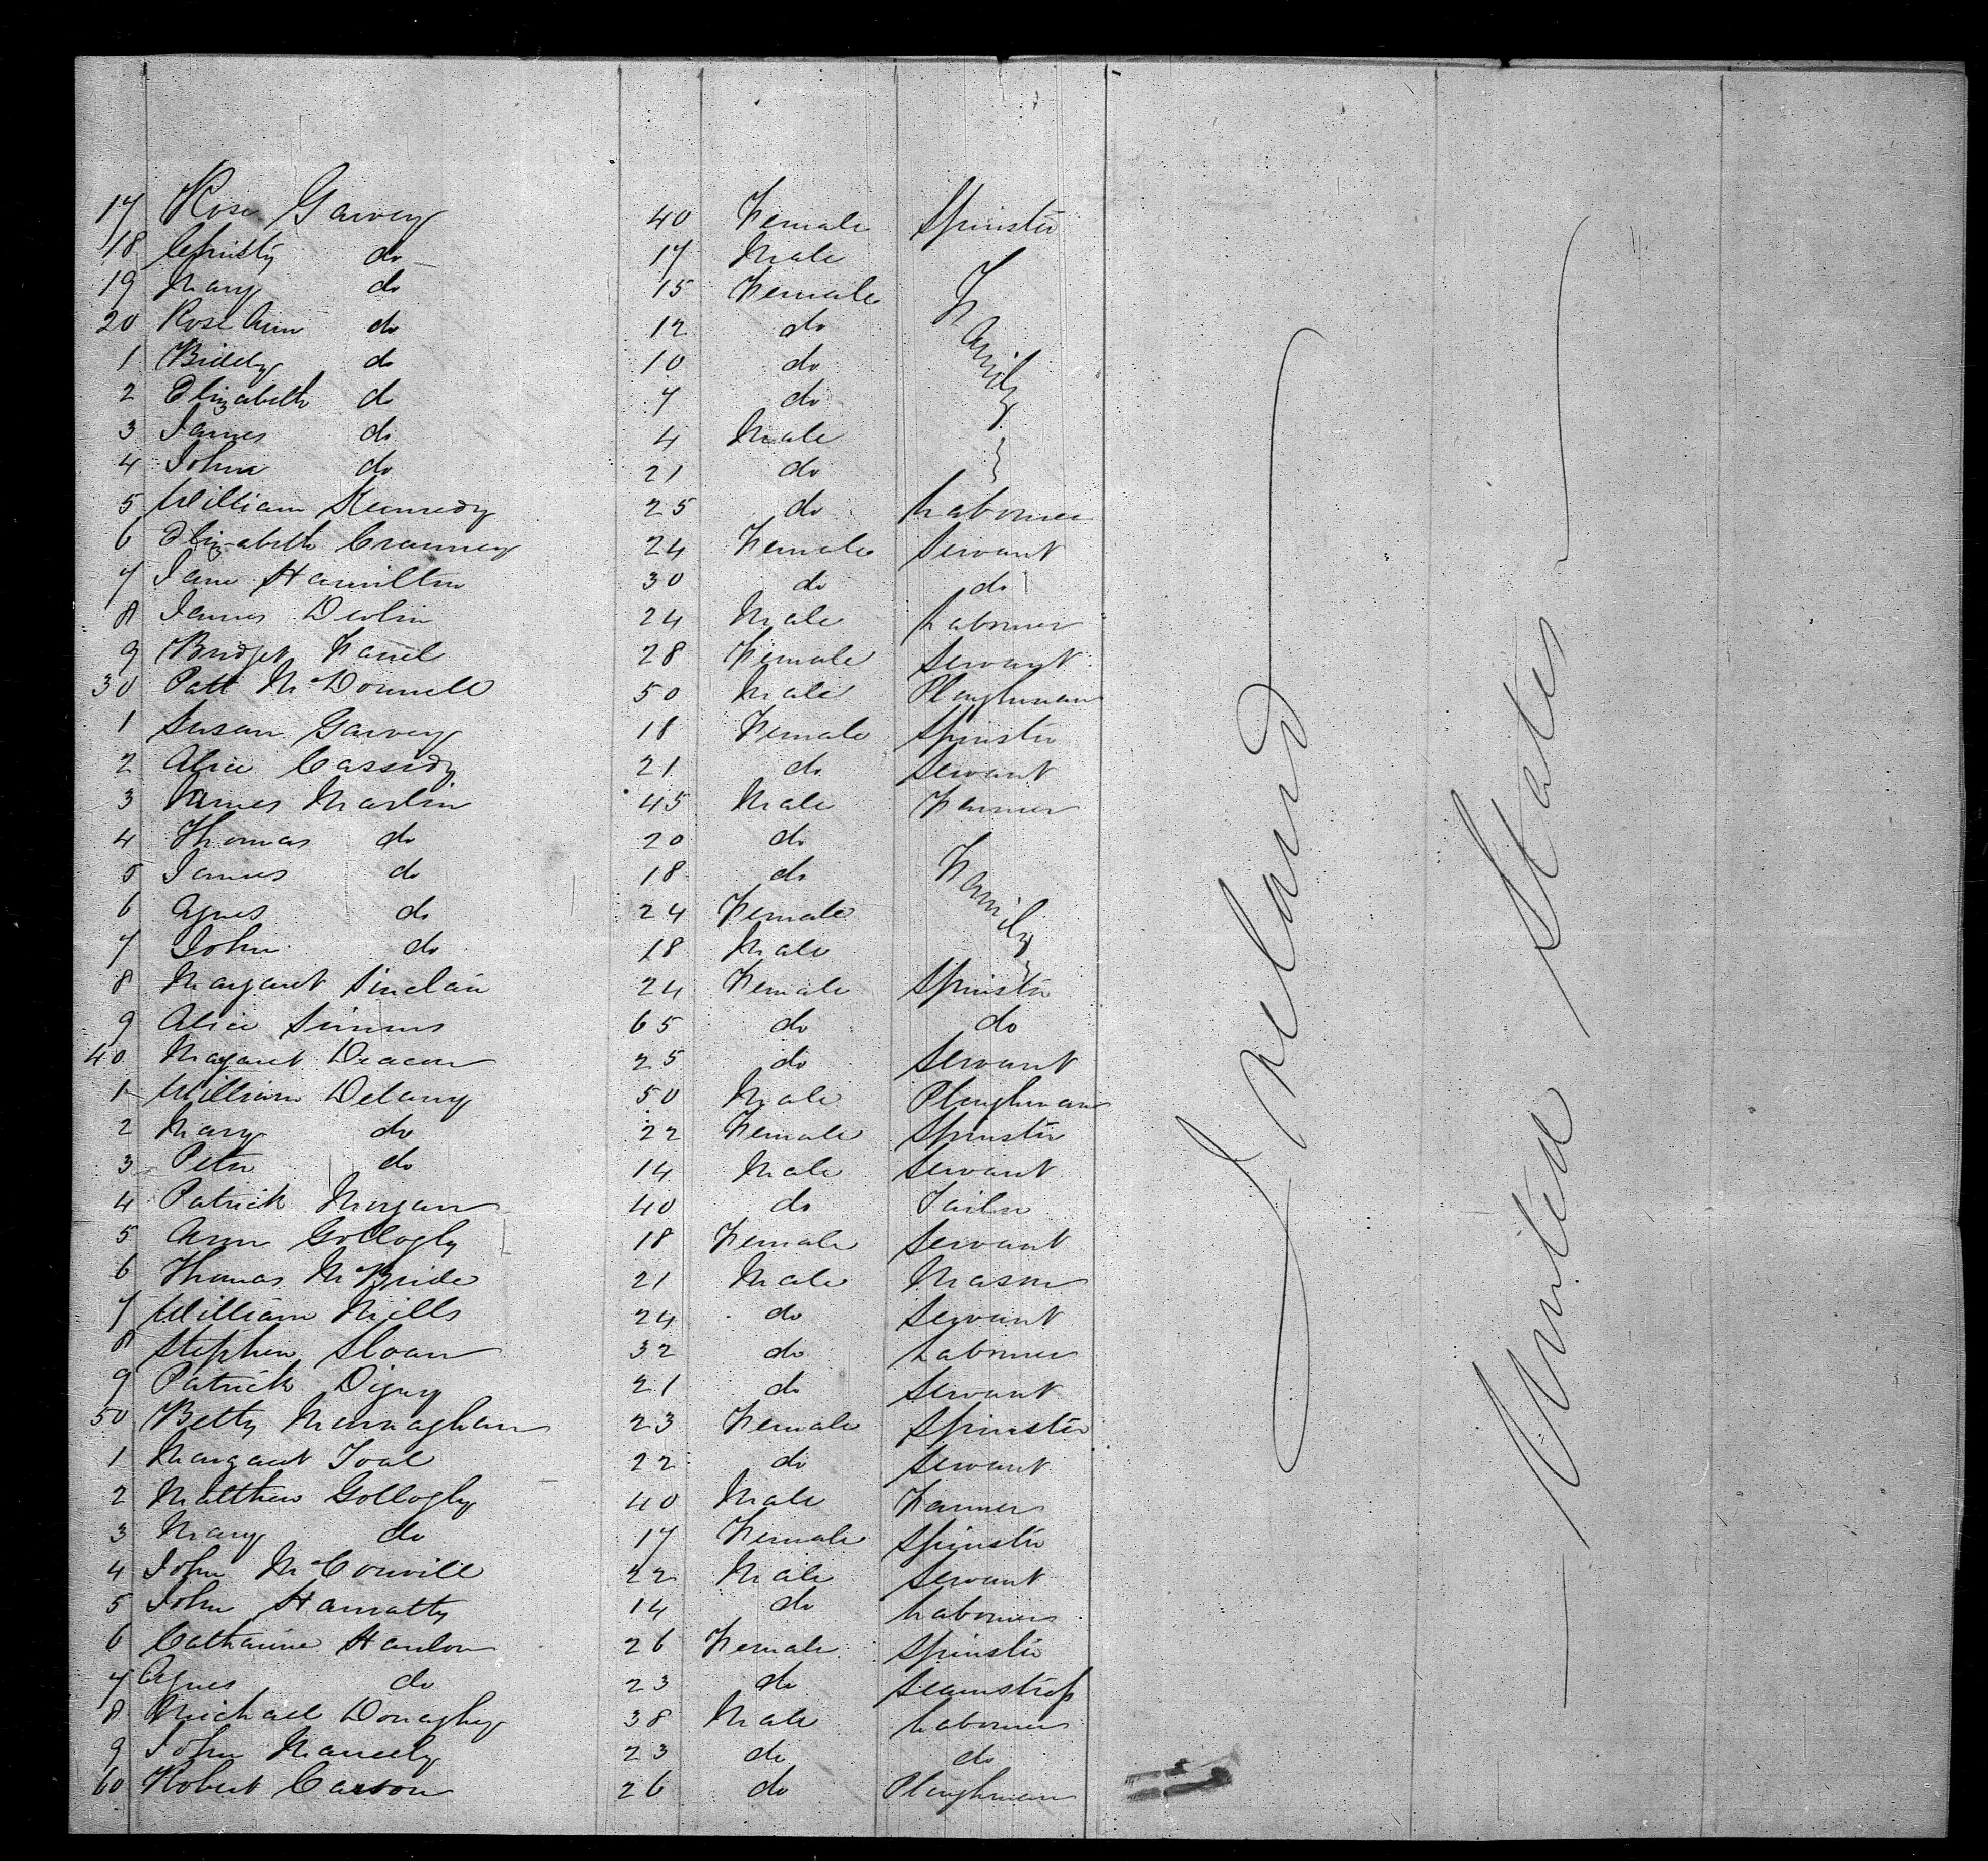 17 Rose Garvey 40 Female Spinster
18 Christy do 17 Male
19 Mary do 15 Female
20 Rose Ann do 12 do
1 Biddy do 10 do
2 Elizabeth do 7 do
3 James do 4 Male
4 John do 21 do
Family
5 William Kennedy 25 do Labourer
6 Elizabeth Cranney 24 Female Servant
7 Jane Hamilton 30 do do
8 James Devlin 24 Male Labourer
9 Bridget 28 Female Servant
30 Patt McDonnell 50 Male Ploughman
1 Susan Garvey 18 Female Spinster
2 Alice Cassidy 21 do Servant
3 James Martin 45 Male Farmer
4 Thomas do 20 do
5 James do 18 do
6 Agnes do 24 Female
7 John do 18 Male
Family
8 Margaret Sinclair 24 Female Spinster
9 Alice Simms 65 do do
40 Margaret Deacon 25 do Servant
1 William Delany 50 Male Ploughman
2 Mary do 22 Female Spinster
3 Peter do 14 Male Servant
4 Patrick Morgan 40 do Tailor
5 Ann Gollogly 18 Female Servant
6 Thomas McBride 21 Male Mason
7 William Mills 24 do Servant
8 Stephen Sloan 32 do Labourer
9 Patrick Digny 21 do Servant
50 Betty Murnaghan 23 Female Spinster
1 Margaret Toal 22 do Servant
2 Matthew Gollogly 40 Male Farmer
3 Mary do 17 Female Spinster
4 John McConvill 22 Male Servant
5 John Hanratty 14 do Labourer
6 Catharine Hanlon 26 Female Spinster
7 Agnes do 23 do Seamstress
8 Michael Donaghy 38 Male Labourer
9 John 23 do do
60 Robert Carson 26 do Ploughman
Ireland
United States